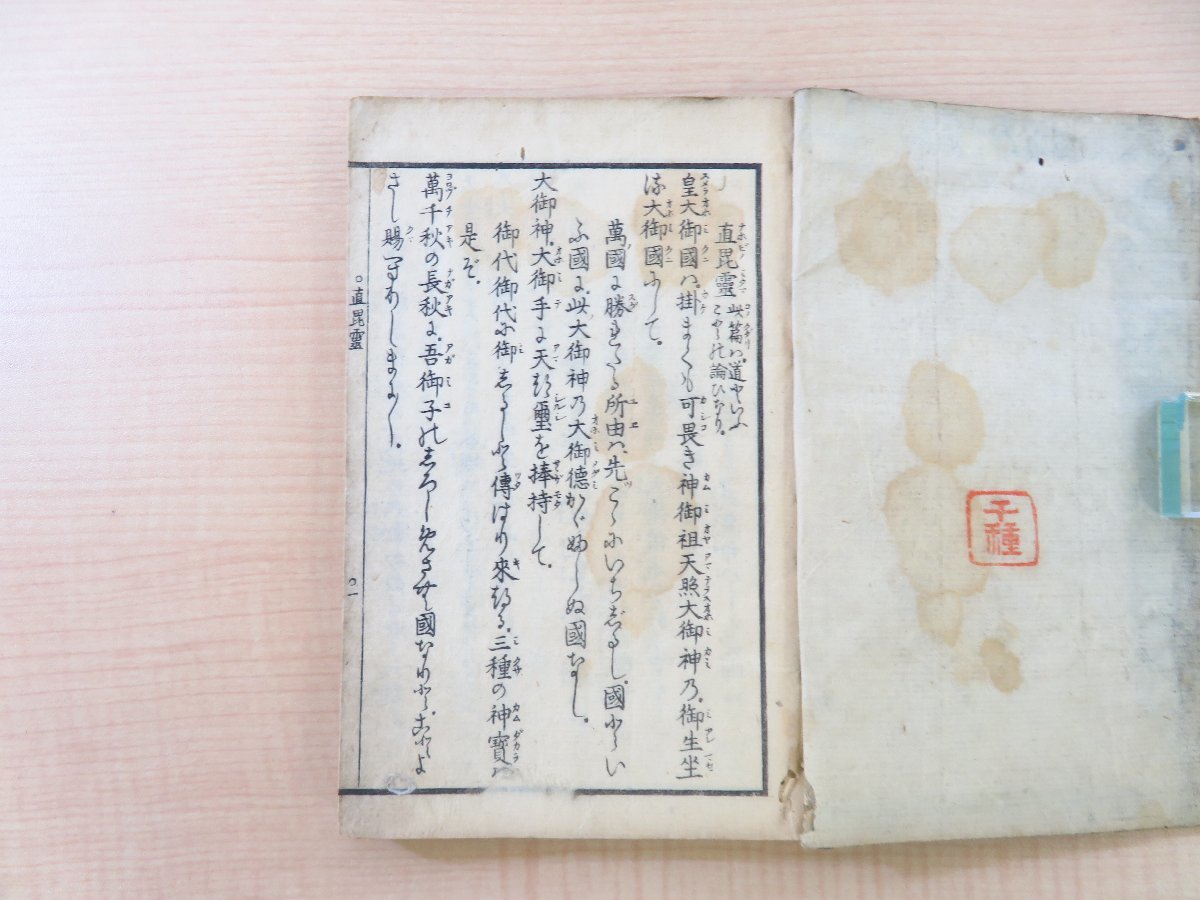 千種
直毘靈
此篇ハ、道といふ
ことの論ひなり。
皇大御國ハ、掛まくも可畏き神御祖天照大御神乃、御生坐
る大御國にして。
萬國に勝れたる所由ハ、先こゝにいちじるし。國といふ
國に、此大御神乃大御德かゞふらぬ國なし。
大御神、大御手に天つ璽を捧持して。
御代御代に御しるしと傳はり來つる、三種の神寶ハ
是ぞ。
萬千秋の長秋に、吾御子のしろしめさむ國なりと、ことよ
さし賜へりしまに〱。
○直毘靈
○一